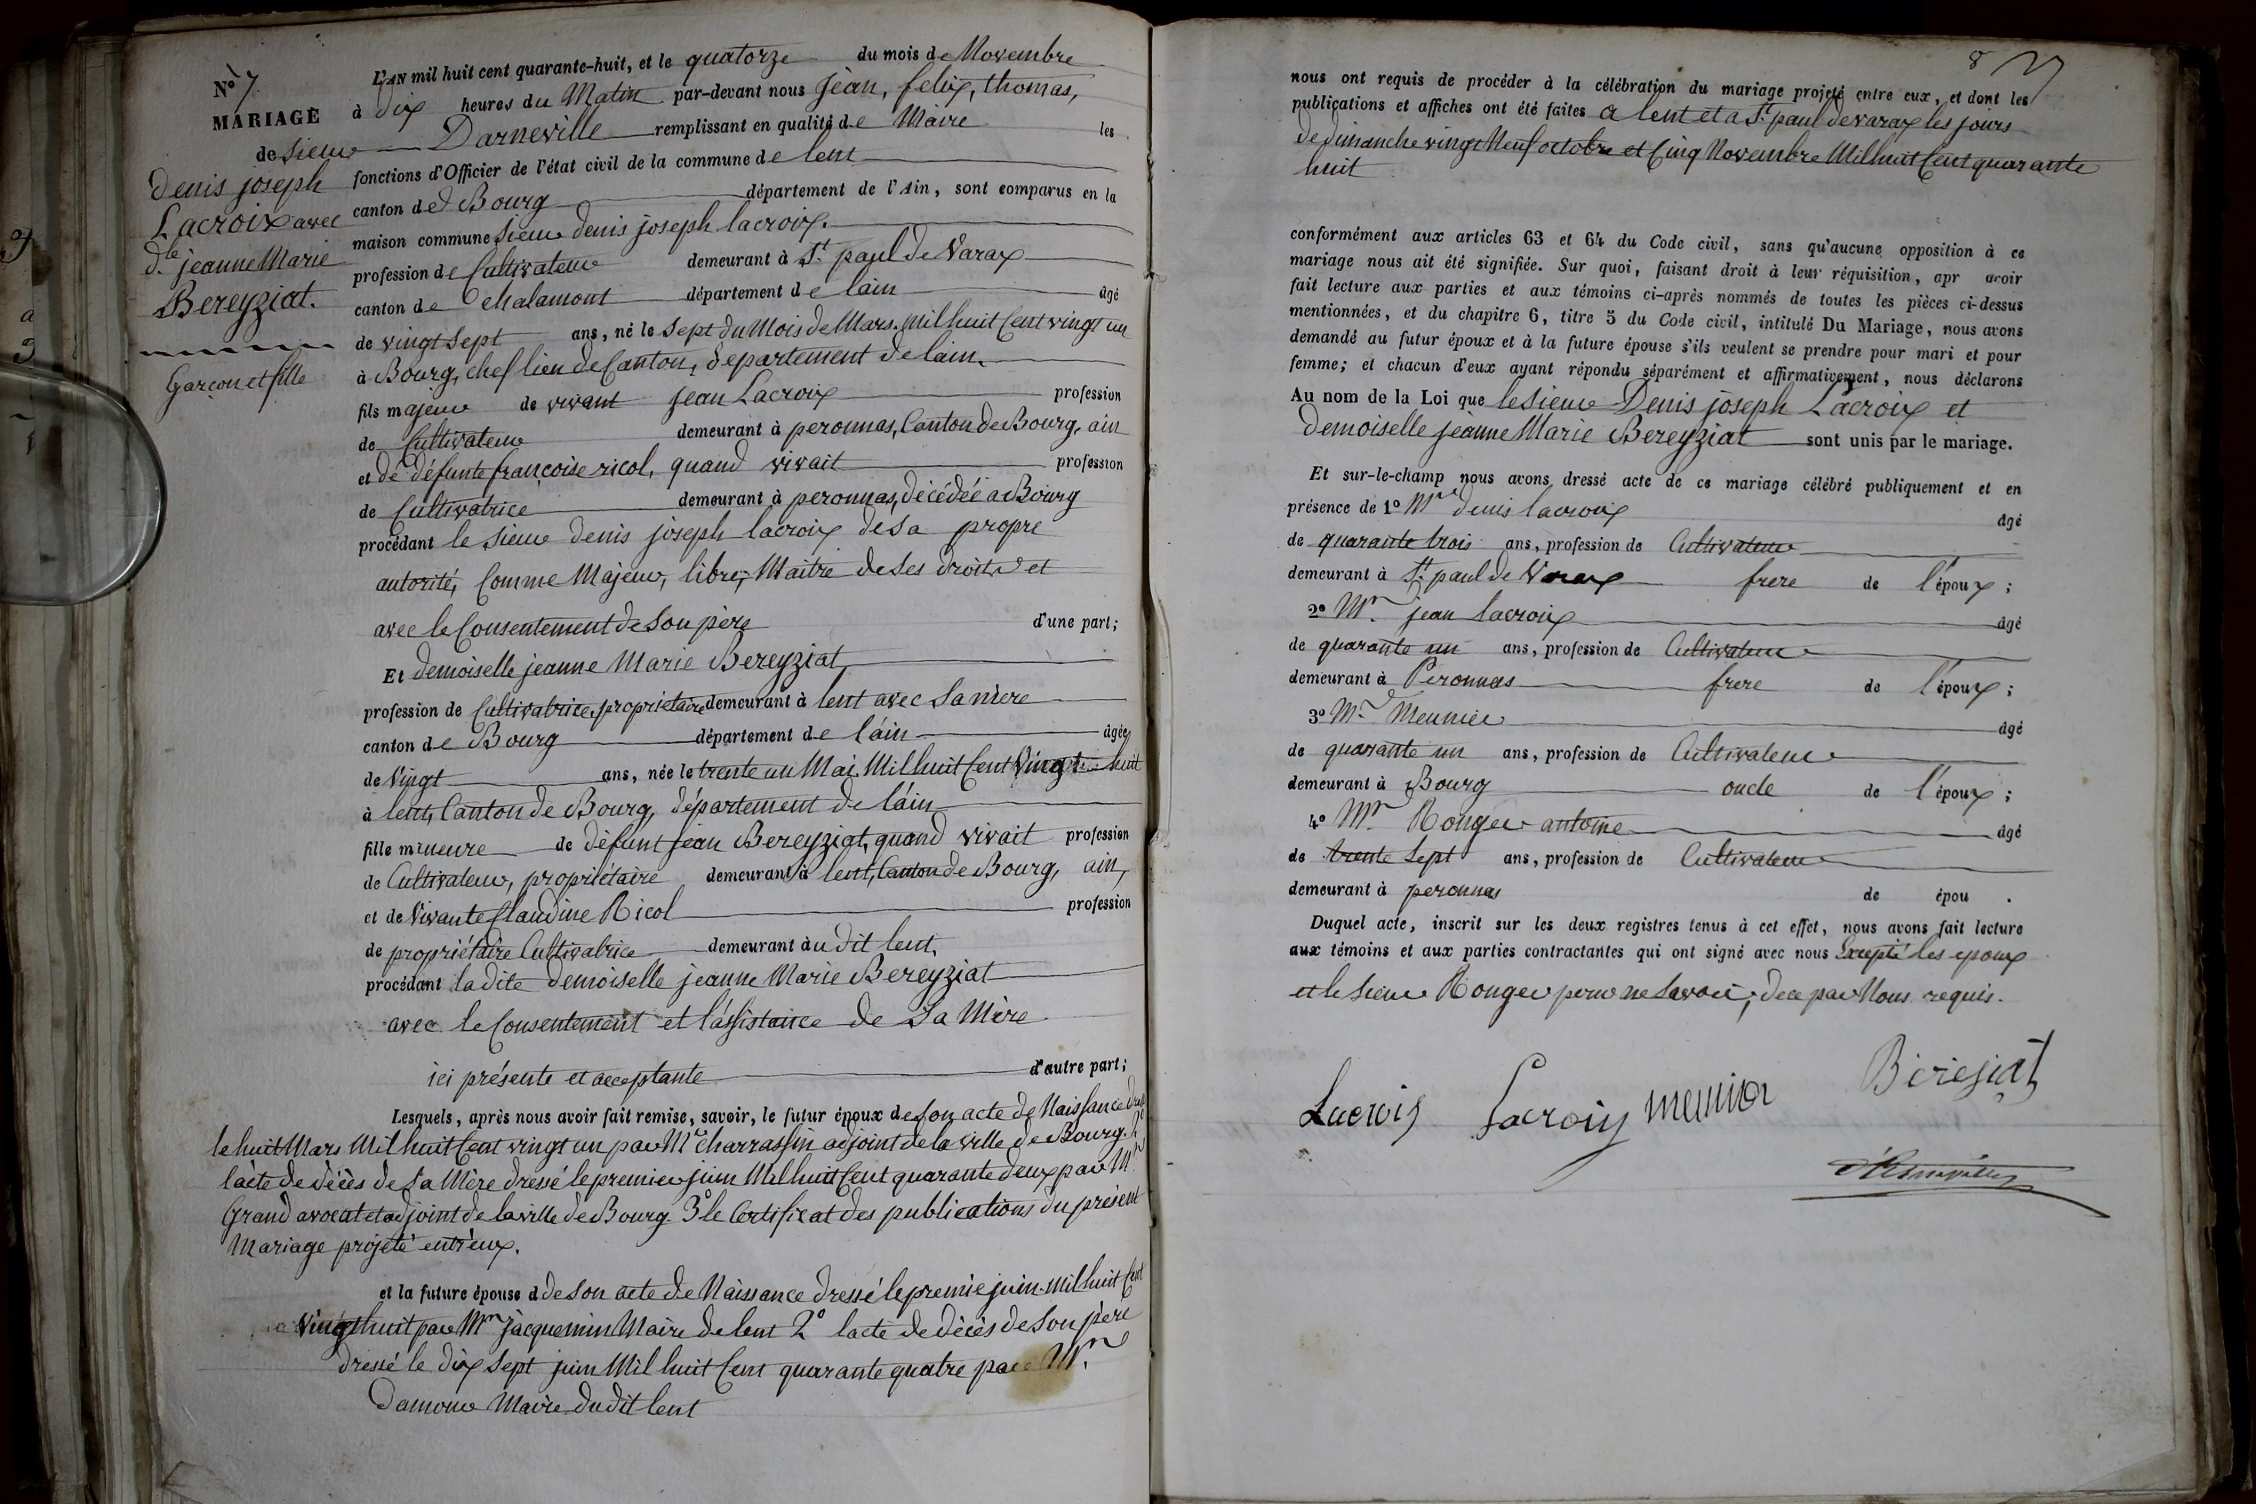 N° 7
MARIAGE
de Sieur
Denis joseph
Lacroix avec
d.le jeanne Marie
Bereyziat.
Garçon et fille
L'AN mil huit cent quarante-huit, et le quatorze du mois de Novembre
à dix heures du Matin par-devant nous Jean, felix, thomas,
Darneville remplissant en qualité de Maire les
fonctions d'Officier de l'état civil de la commune de lent
canton de Bourg département de l'Ain, sont comparus en la
maison commune Sieur denis joseph lacroix.
profession de Cultivateur demeurant à St. paul de Varax
canton de chalamont département de lain âgé
de vingt sept ans, né le Sept du Mois de Mars Mil huit Cent vingt un
à Bourg, chef lieu de Canton, département de lain.
fils majeur de vivant Jean Lacroix profession
de Cultivateur demeurant à peronnas, Canton de Bourg, ain
et de défunte françoise ricol, quand vivait profession
de Cultivatrice demeurant à peronnas, décédée a Bourg
procédant le Sieur denis joseph lacroix de Sa propre
autorité, Comme Majeur, libre, Maitre de Ses droits et
avec le Consentement de Son père d'une part;
Et demoiselle jeanne Marie Bereyziat
profession de Cultivatrice, propriétaire demeurant à lent avec Sa mère
canton de Bourg département de l'ain âgée
de Vingt ans, née le trente un Mai Mil huit Cent Vingt huit
à lent, Canton de Bourg, département de l'ain
fille mineure de défunt Jean Bereyziat, quand vivait profession
de Cultivateur, propriétaire demeurant à lent, Canton de Bourg, ain,
et de Vivante Claudine Ricol profession
de propriétaire Cultivatrice demeurant àudit lent,
procédant ladite demoiselle jeanne Marie Bereyziat
avec le Consentement et l'assistance de Sa Mère
ici présente et acceptante d'autre part;
Lesquels, après nous avoir fait remise, savoir, le futur époux de Son acte de Naissance dressé
le huit Mars Mil huit Cent vingt un par Mr charrassin adjoint de la ville de Bourg. 2°
lacte de décès de Sa Mère dressé le premier juin Mil huit Cent quarante deux par Mr.
Grand avocat et adjoint de la ville de Bourg. 3° le Certificat des publications du présent
Mariage projeté entr'eux.
et la future épouse d de Son acte de Naissance dressé le premie juin Mil huit Cent
Vingt huit par Mr Jacquemin Maire de lent 2° lacte de décès de Son père
dressé le dix Sept juin Mil huit Cent quarante quatre par Mr.
Damour Maire dudit lent
8
nous ont requis de procéder à la célébration du mariage projeté entre eux, et dont les
publications et affiches ont été faites a lent et a St. paul de varax les jours
de dimanche vingt Neuf octobre et Cinq Novembre Mil huit Cent quarante
huit
conformément aux articles 63 et 64 du Code civil, sans qu'aucune opposition à ce
mariage nous ait été signifiée. Sur quoi, faisant droit à leur réquisition, apr avoir
fait lecture aux parties et aux témoins ci-après nommés de toutes les pièces ci-dessus
mentionnées, et du chapitre 6, titre 5 du Code civil, intitulé Du Mariage, nous avons
demandé au futur époux et à la future épouse s'ils veulent se prendre pour mari et pour
femme; et chacun d'eux ayant répondu séparément et affirmativement, nous déclarons
Au nom de la Loi que le Sieur Denis joseph Lacroix et
demoiselle jeanne Marie Bereyziat sont unis par le mariage.
Et sur-le-champ nous avons dressé acte de ce mariage célébré publiquement et en
présence de 1° Mr denis lacroix âgé
de quarante trois ans, profession de Cultivateur
demeurant à St. paul de Varax frere de l'époux;
2° Mr. jean lacroix âgé
de quarante un ans, profession de Cultivateur
demeurant à Peronnas frere de l'époux;
3° Mr. Meunier âgé
de quarante un ans, profession de Cultivateur
demeurant à Bourg oncle de l'époux;
4° Mr. Rouger antoine âgé
de trente Sept ans, profession de Cultivateur
demeurant à peronnas de épou .
Duquel acte, inscrit sur les deux registres tenus à cet effet, nous avons fait lecture
aux témoins et aux parties contractantes qui ont signé avec nous Excepté les epoux
et le Sieur Rouger pour ne Savoir, de ce par Nous requis.
Lacroix Lacroix meunier Bereziat